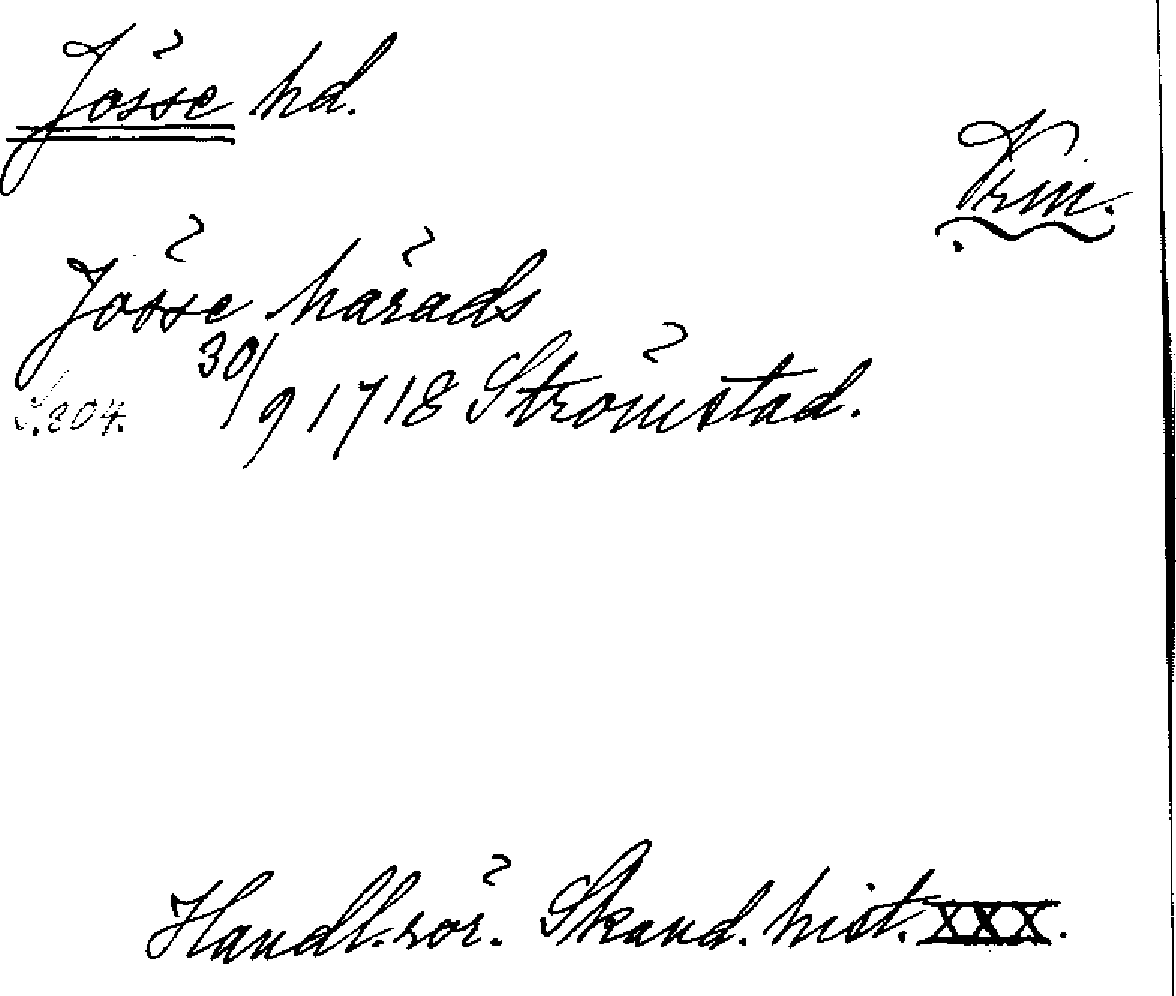 Jösse hd.
Vrm.
Jösse härads
30/9 1718 Strömstad.
S. 204.
Handl. rör. Skand. hist. XXX.